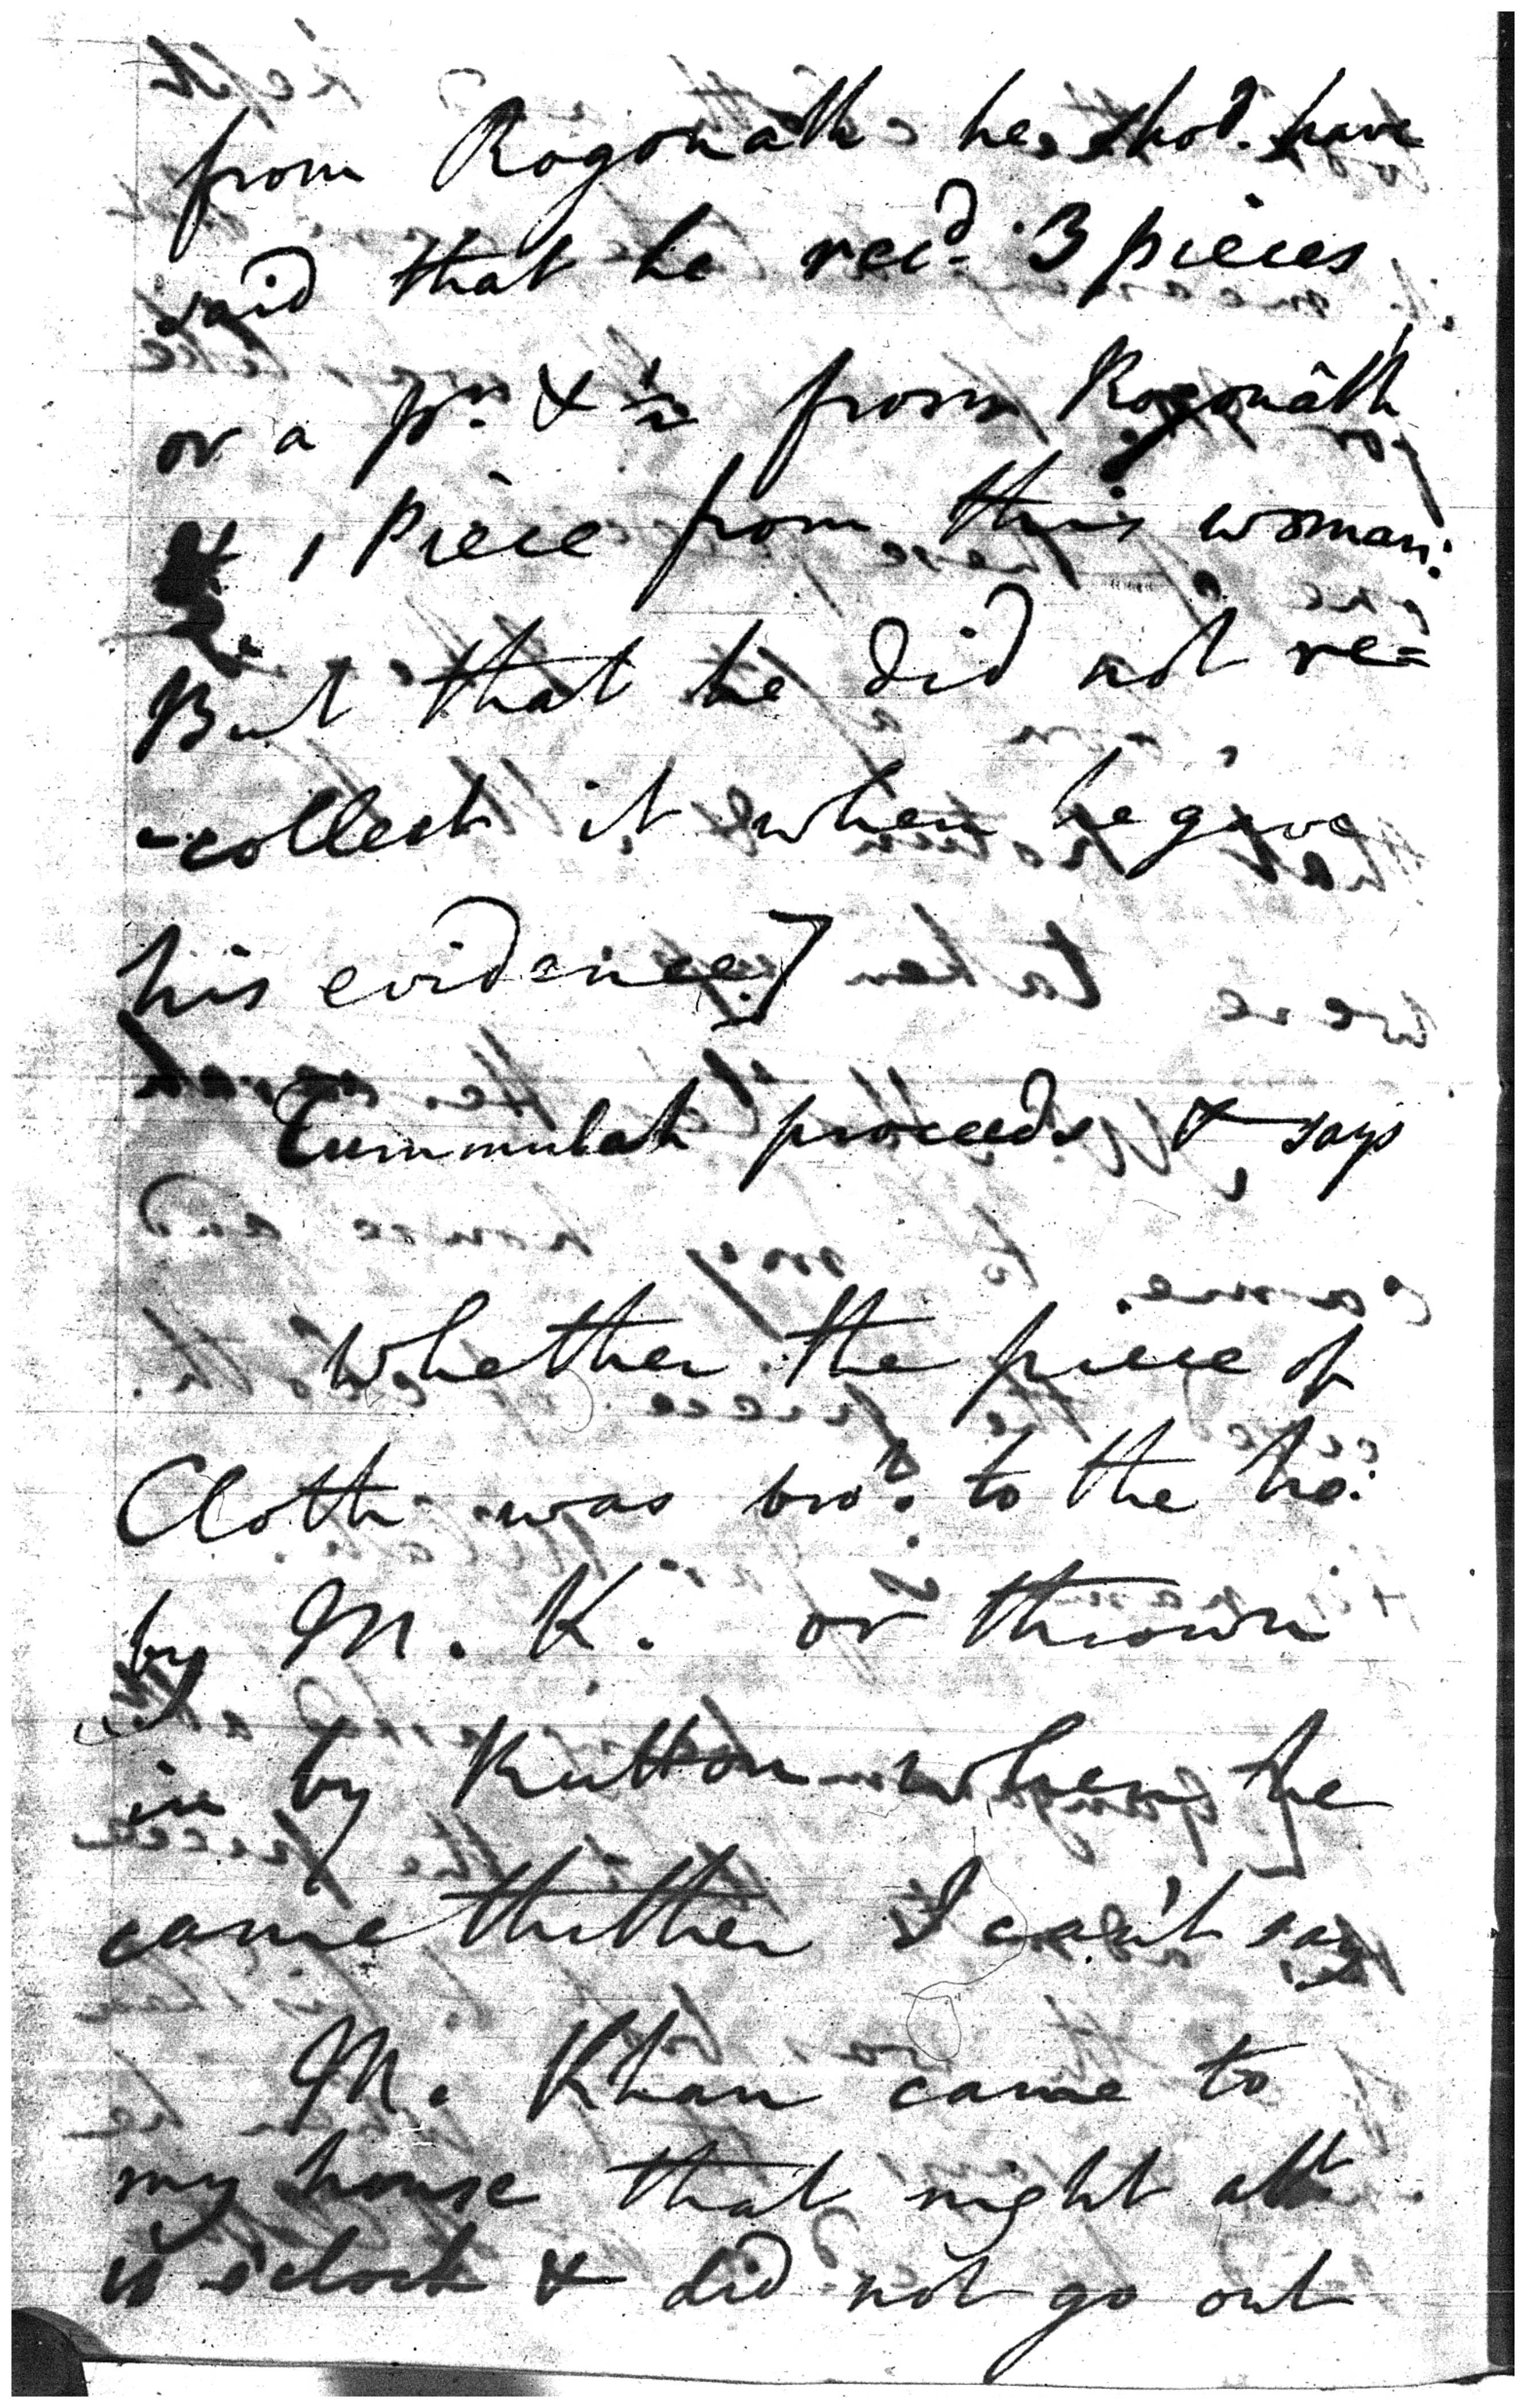 from Rogonath he shod. have
said that he recd. 3 pieces
or a ps. & ½ from Rogonâth
& 1 Piece from this woman:
But that he did not re=
-collect it when he gave
his evidence]
Tummulah proceeds & says
Whether the piece of
Cloth was brot. to the ho:
by M. K. or thrown
in by Rutton when he
came thither I can't say
M. Khan came to
my house that night abt
o'clock & did not go out